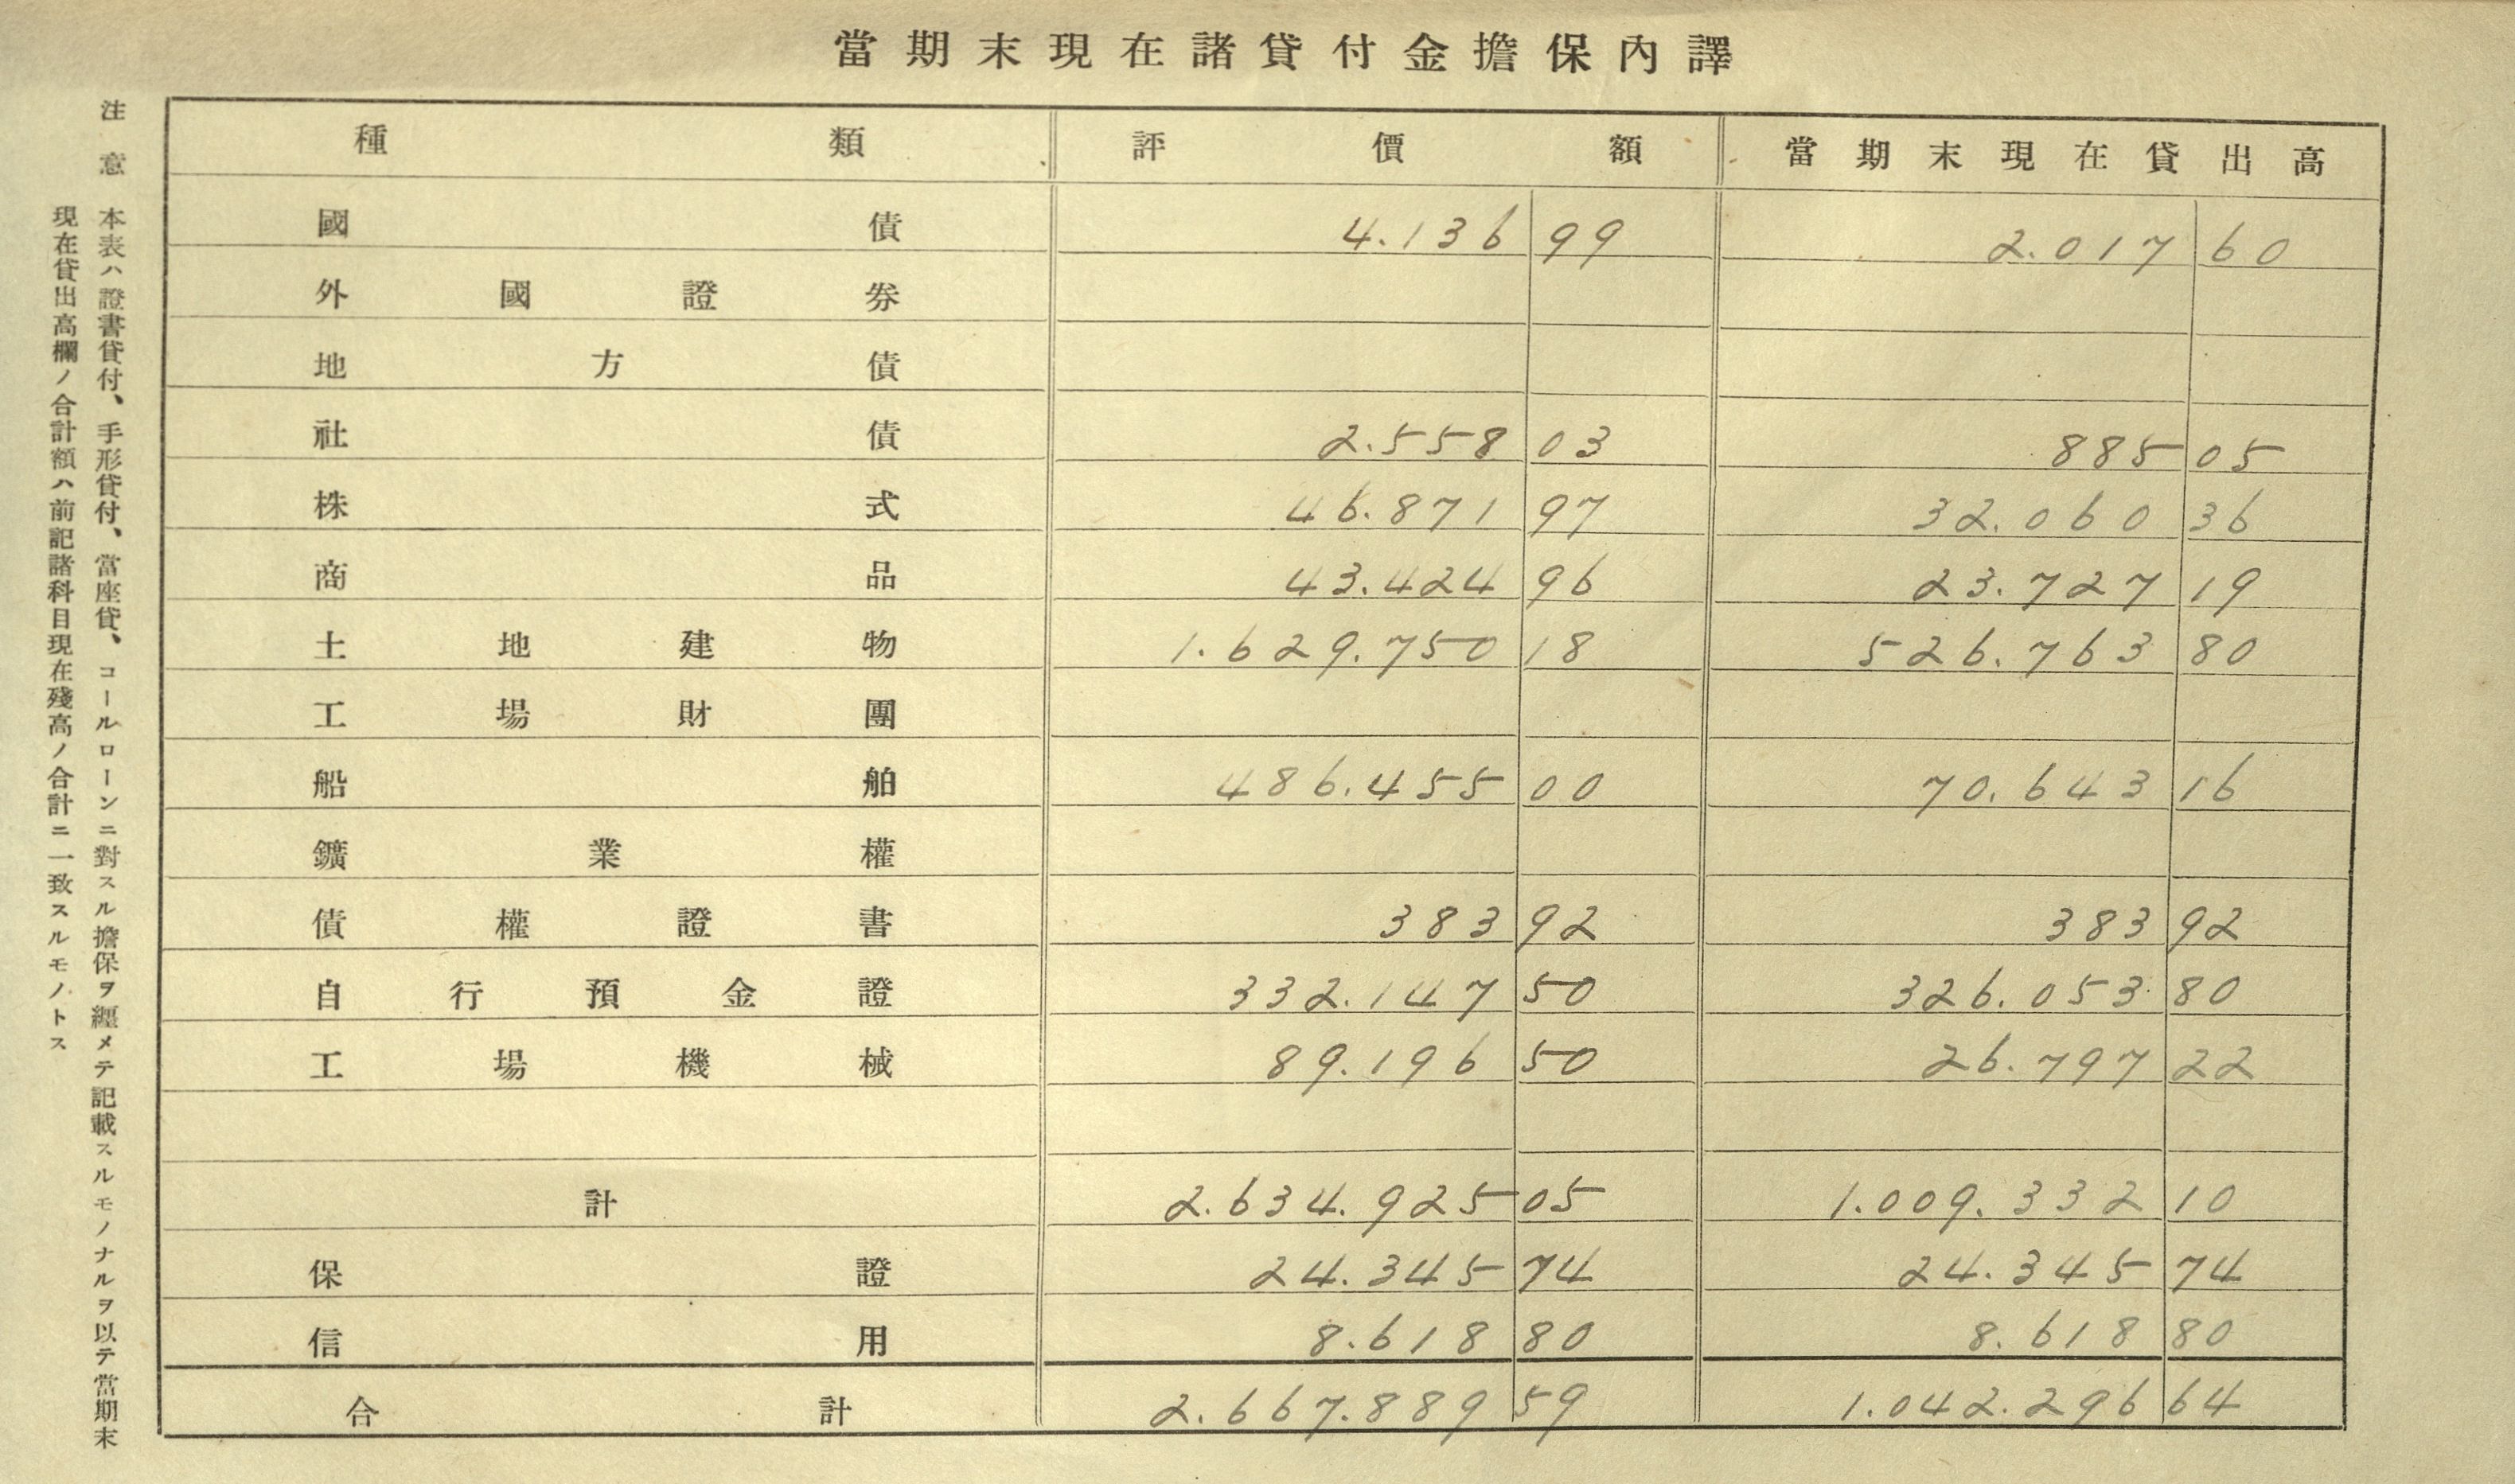 當期末現在諸貸付金擔保內譯
種類 評價額 當期末現在貸出高
國債 4.136 99 2.017 60
外國證券
地方債
社債 2.558 03 885 05
株式 46.871 97 32.060 36
商品 43.424 96 23.727 19
土地建物 1.629.750 18 526.763 80
工場財團
船舶 486.455 00 70.643 16
鑛業權
債權證書 383 92 383 92
自行預金證 332.147 50 326.053 80
工場機械 89.196 50 26.797 22
計 2.634.925 05 1.009.332 10
保證 24.345 74 24.345 74
信用 8.618 80 8.618 80
合計 2.667.889 59 1.042.296 64
注意 本表ハ證書貸付、手形貸付、當座貸、コールローンニ對スル擔保ヲ纒メテ記載スルモノナルヲ以テ當期末
現在貸出高欄ノ合計額ハ前記諸科目現在殘高ノ合計ニ一致スルモノトス